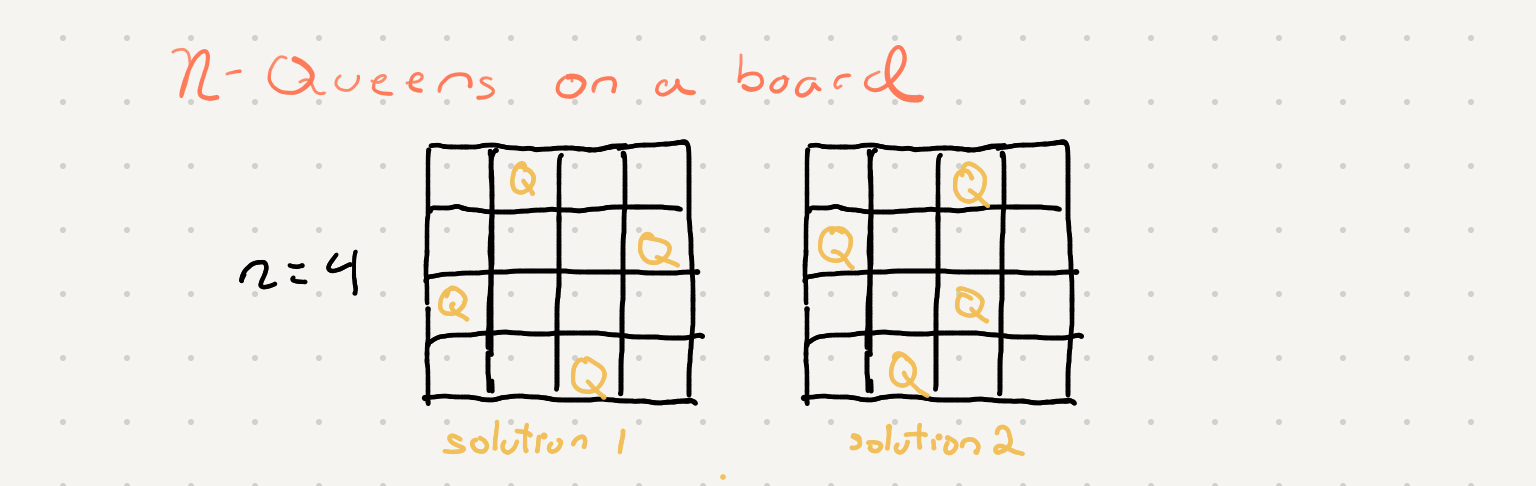 n-Queens on a board
Q Q
Q Q
n=4
Q Q
Q Q
solution 1 solution 2